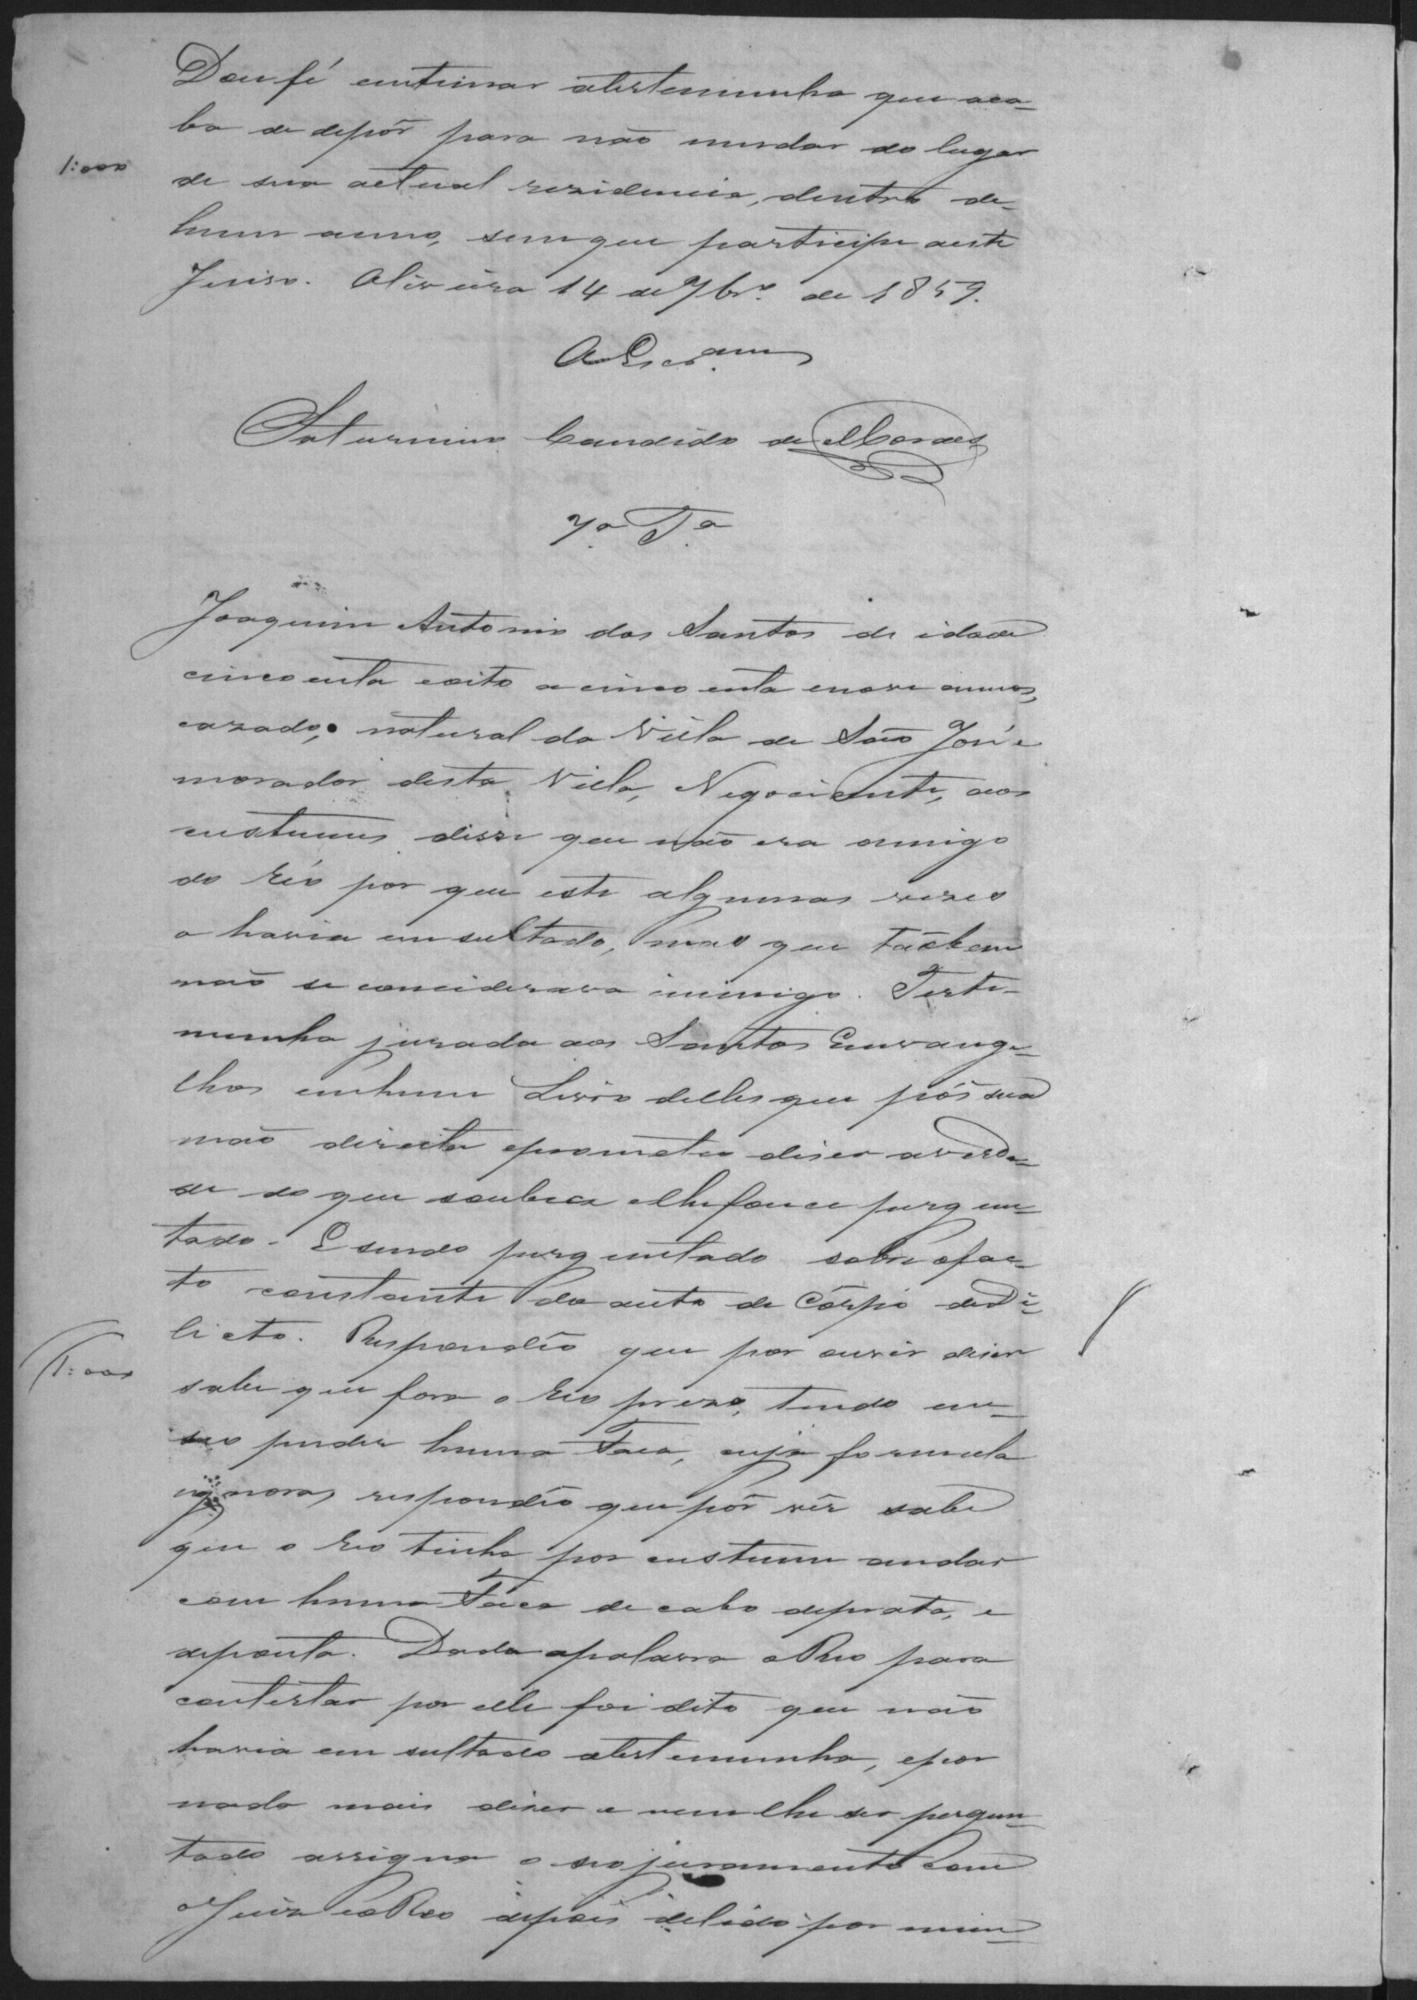 Dou fé entimar atestemunha que aca-
ba de depôr para não mudar do lugar
1:000
de sua actual rezidencia, dentro de
hum anno, sem que participe aeste
Juiso. Oliveira 14 de 7br.º de 1859.
OEscr.am
Saturnino Candido de Moraes
7.ª T.ª
Joaquim Antonio dos Santos de idade
cincoenta eoito a cincoenta enove annos,
cazado, natural da Villa de São José e
morador desta Villa, Negociante, aos
custumes disse que não era amigo
do Réo por que este algumas vezes
o havia emsultado, mas que tãobem
não se conciderava inimigo. Teste-
munha jurada aos Santos Euvange-
lhos emhum Livro delles que pôs sua
mão direita eprometeo diser averda-
de do que soubece elhefoce pergun-
tado. E sendo perguntado sobre ofac-
to constante do auto de Côrpo deDe-
licto. Respondêo que por ouvir diser
1:000
sabe que fora o Reo prezo, tendo em
seo puder huma Faca, cuja formula
ignora, respondêo que pôr vêr sabe
que o Reo tinha por custume andar
com huma Faca de cabo deprata, e
deponta. Dada apalavra oReo para
contestar por elle foi dito que não
havia emsultado atestemunha, epor
nada mais diser e nem lhe ser pergun-
tado assigna o seo juramento com
oJuiz eoReo depois delido por mim